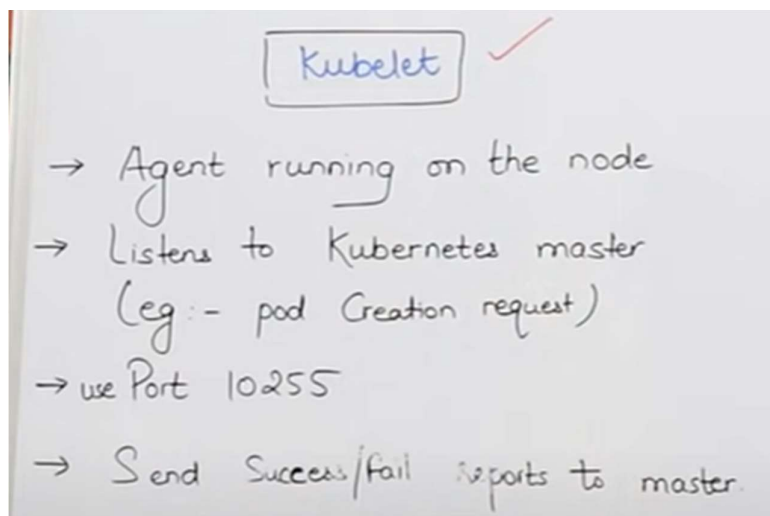 Kubelet
→ Agent running on the node
→ Listens to Kubernetes master
(eg:- pod Creation request)
→ use Port 10255
→ Send Success/fail reports to master.